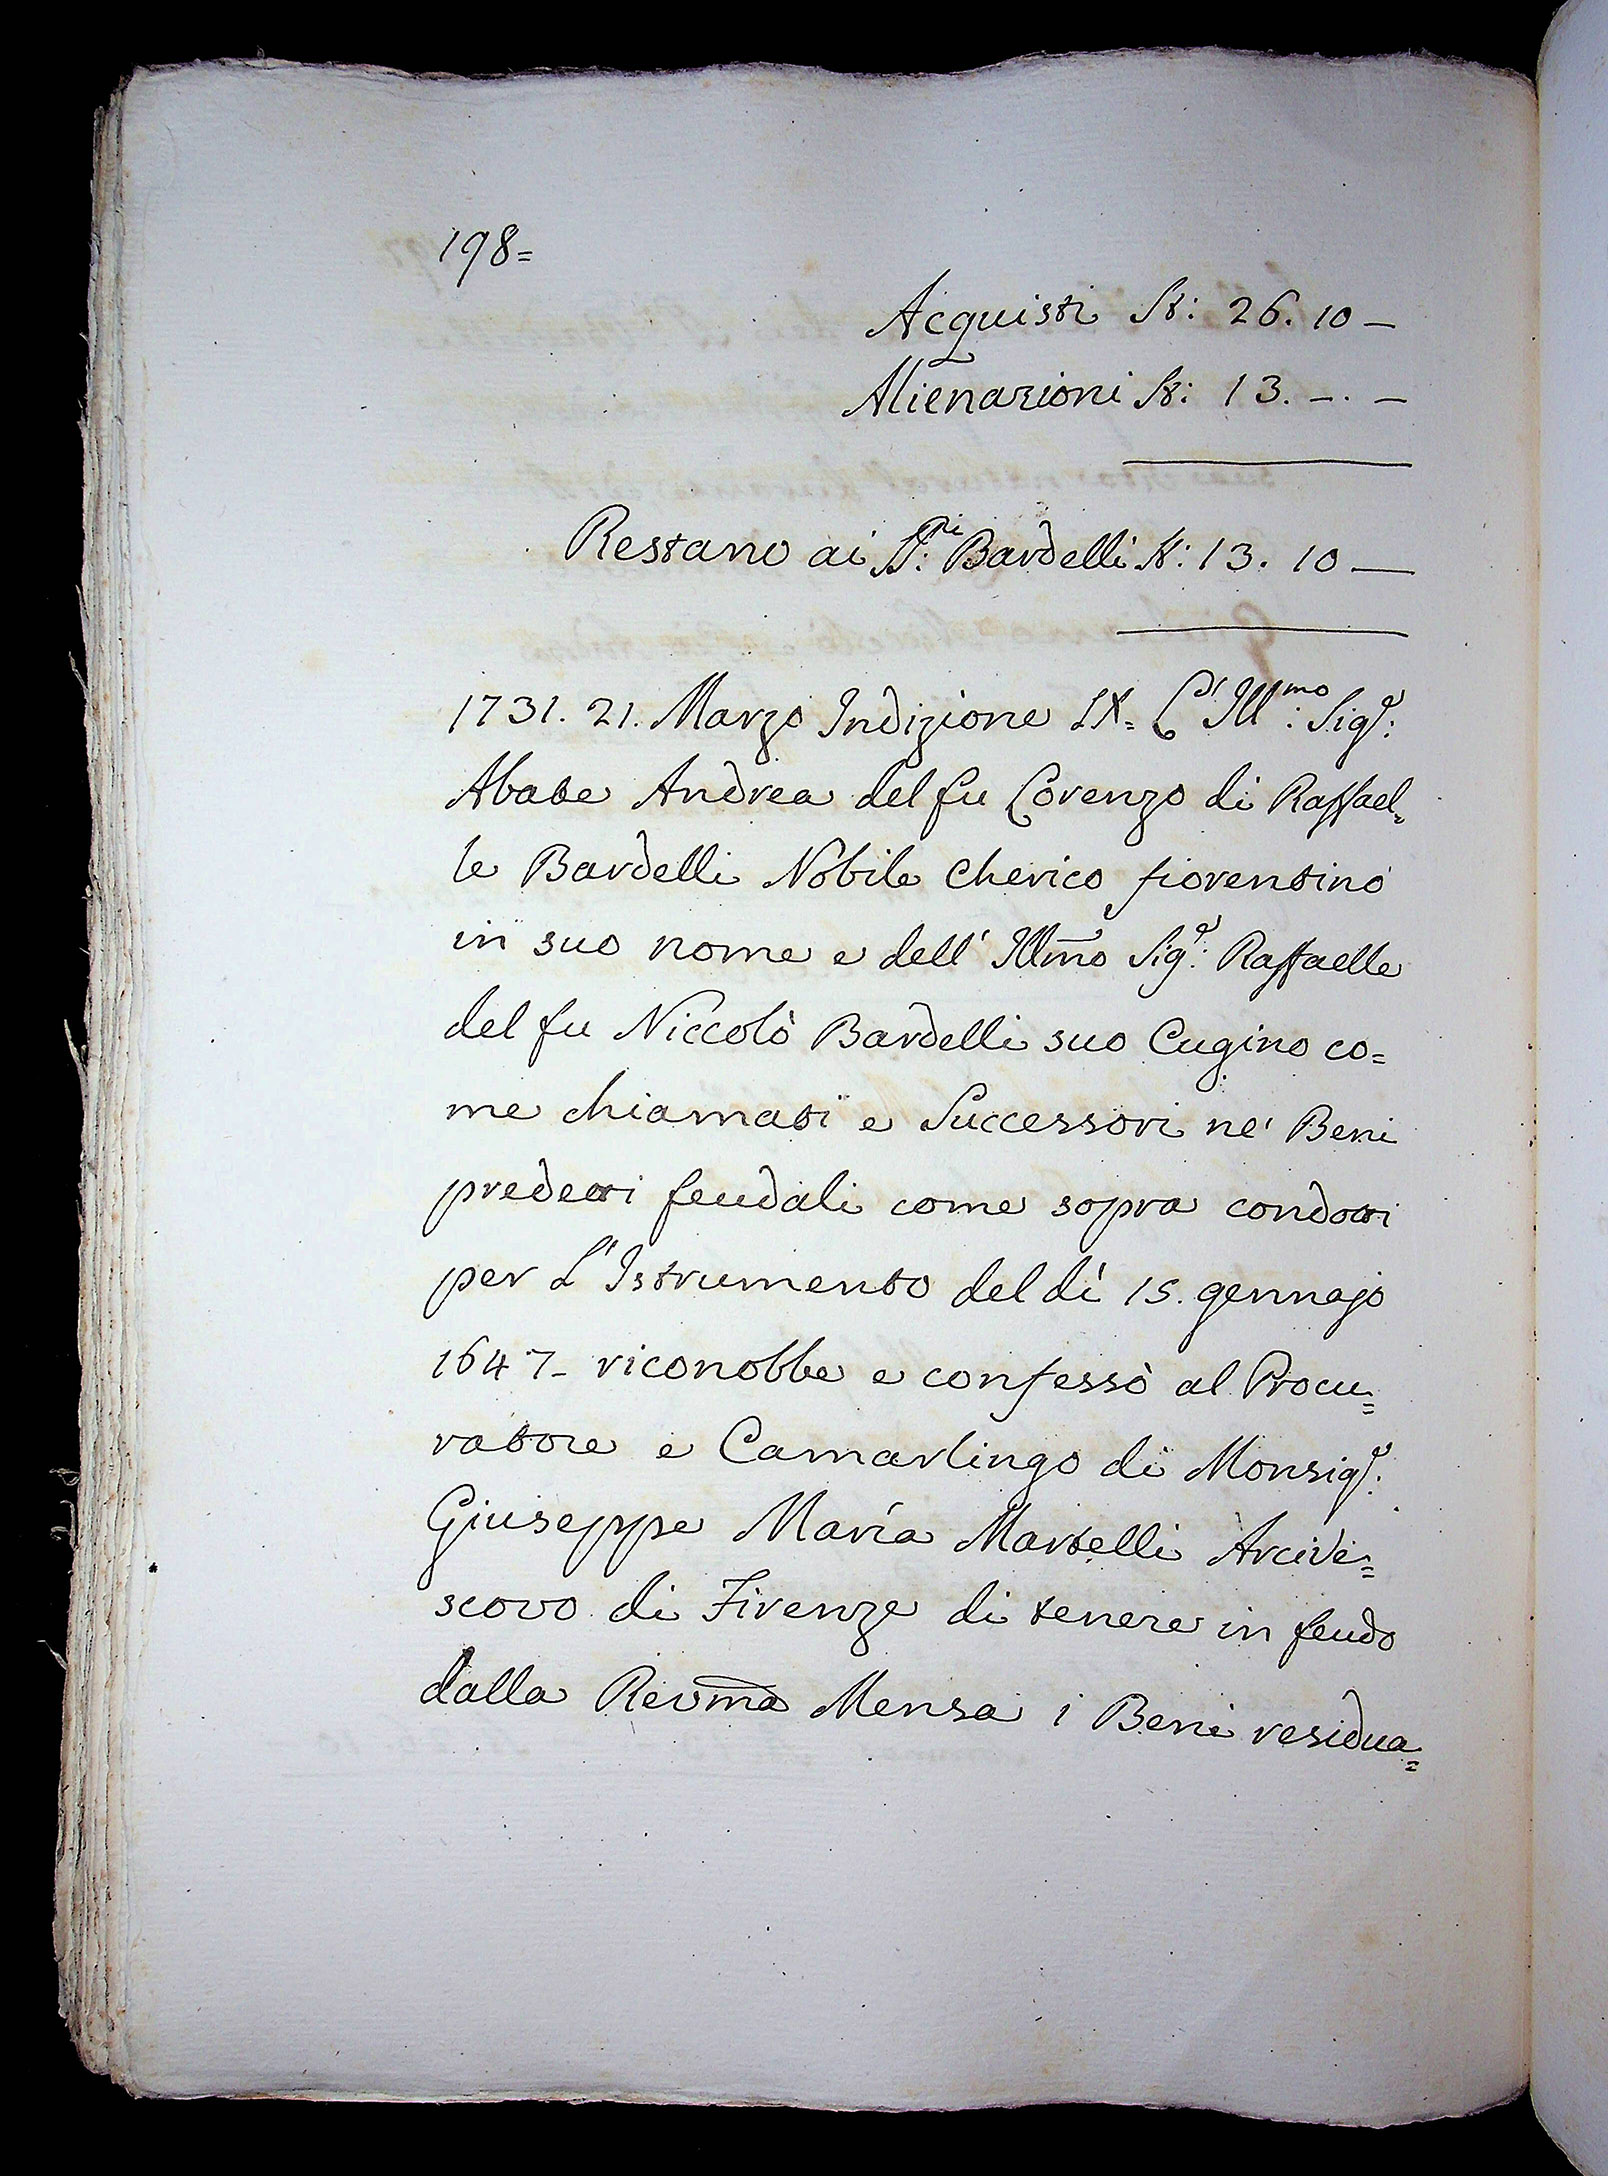 198=
Acquisti St: 26. 10 —
Alienazioni St: 13. –. –
Restano ai SS:ri Bardelli St: 13. 10 —
1731. 21. Marzo Indizione IX= L'Ill:mo Sigr:
Abate Andrea del fu Lorenzo di Raffael=
le Bardelli Nobile Cherico fiorentino
in suo nome e dell' Illmo Sigr: Raffaelle
del fu Niccolò Bardelli suo Cugino co=
me chiamati e Successori ne' Beni
predetti feudali come sopra condotti
per L'Istrumento del dì 15. gennajo
1647– riconobbe e confessò al Procu=
ratore e Camarlingo di Monsigr:
Giuseppe Maria Martelli Arcive=
scovo di Firenze di tenere in feudo
dalla Revma Mensa i Beni residua=